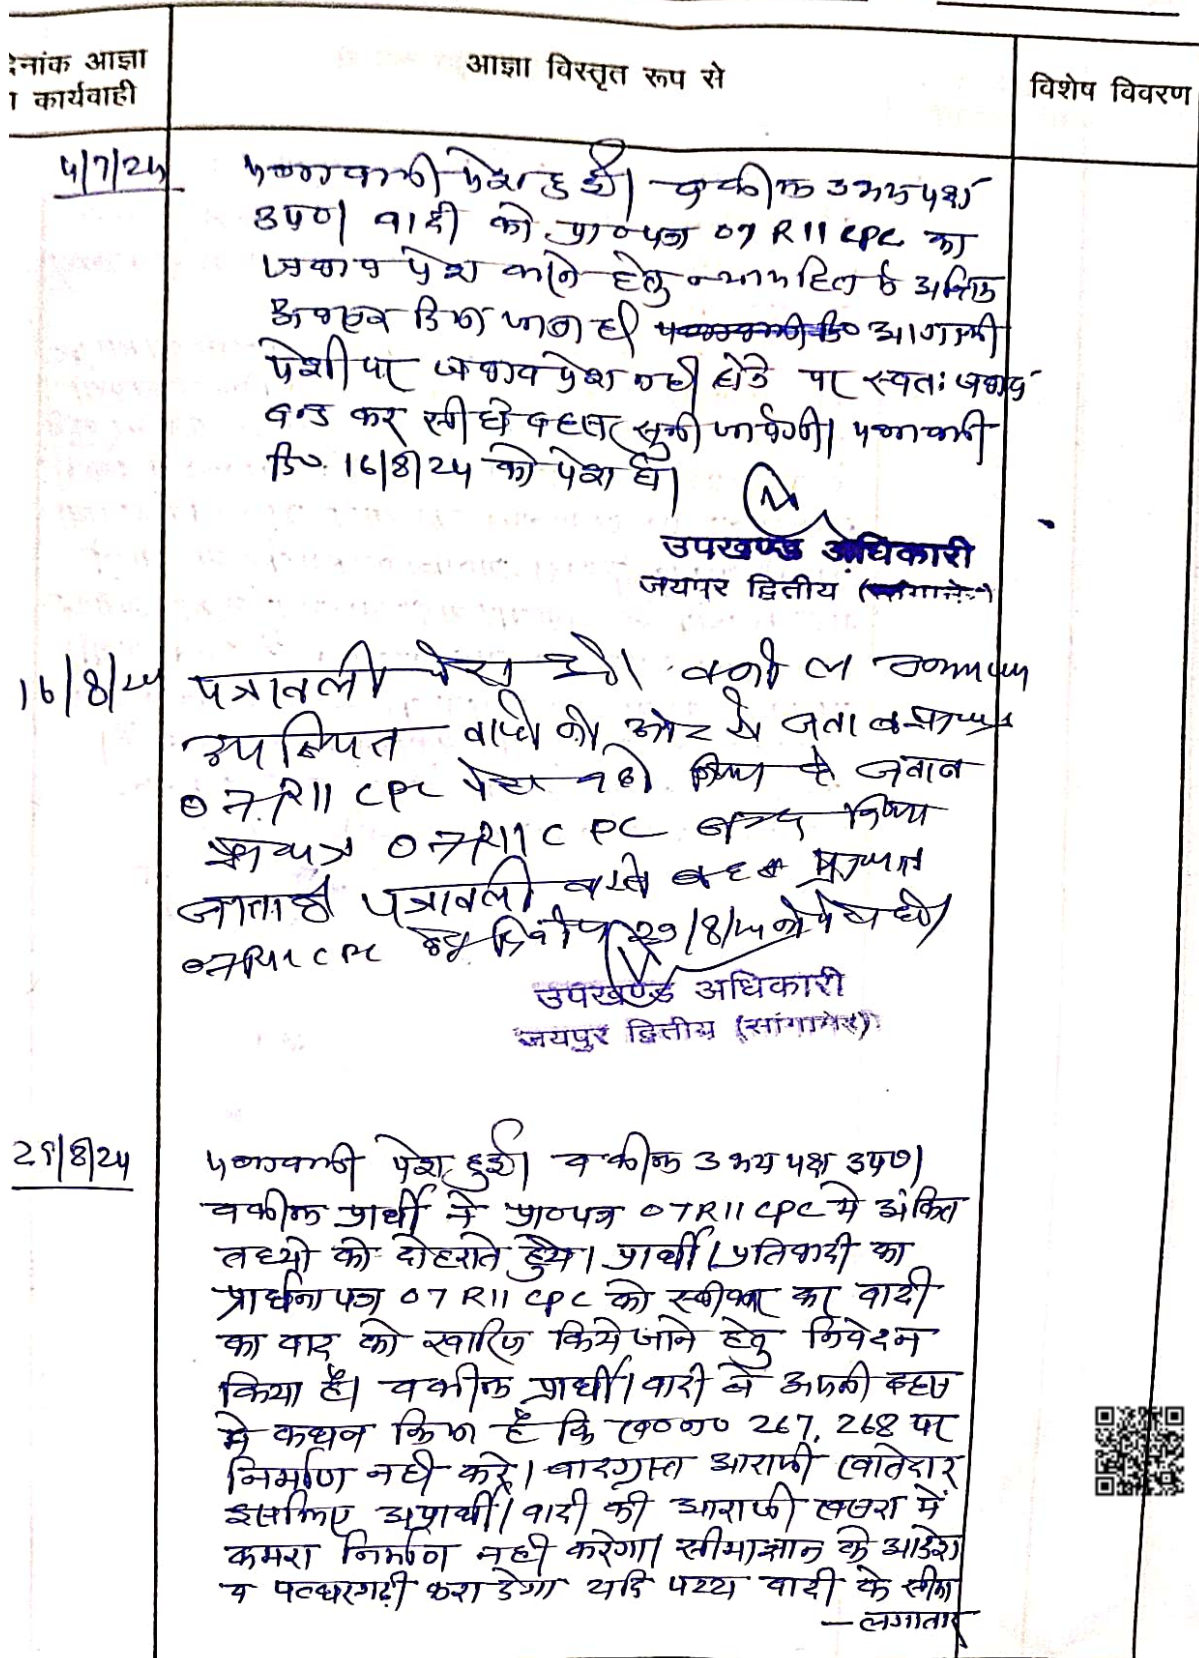 दिनांक आज्ञा
कार्यवाही
आज्ञा विस्तृत रूप से
विशेष विवरण
5/7/24
पत्रावली पेश हुई। वकील उभयपक्ष
उप०। वादी को प्रा०पत्र 07 R 11 CPC का
जवाब पेश करने हेतु न्यायहित में अन्तिम
अवसर दिया जाता है। आगामी
पेशी पर जवाब पेश नही होने पर स्वतः जवाब
बन्द कर सीधे बहस सुनी जायेगी। पत्रावली
दि० 16/8/24 को पेश हो।
उपखण्ड अधिकारी
जयपुर द्वितीय (सांगानेर)
16/8/24
पत्रावली पेश हुई। वकील उभयपक्ष
उपस्थित वादी की ओर से जवाब प्रा०पत्र
07 R11 CPC पेश नही किया है जवाब
प्रा०पत्र 07R11 CPC बन्द किया
जाता है पत्रावली वास्ते बहस प्रा०पत्र
07R11 CPC हेतु दिनांक 29/8/24 को पेश हो।
उपखण्ड अधिकारी
जयपुर द्वितीय (सांगानेर)
29/8/24
पत्रावली पेश हुई। वकील उभय पक्ष उप०।
वकील प्रार्थी ने प्रा०पत्र 07R11 CPC मे अंकित
तथ्यो को दोहराते हुये। प्रार्थी/प्रतिवादी का
प्रार्थना पत्र 07 R11 CPC को स्वीकार कर वादी
का वाद को खारिज किये जाने हेतु निवेदन
किया है। वकील प्रार्थी/वादी ने अपनी बहस
मे कथन किया है कि ख०न० 267, 268 पर
निर्माण नही करे। वादग्रस्त आराजी खातेदार
इसलिए अप्रार्थी/वादी की आराजी खसरा में
कमरा निर्माण नही करेगा। सीमाज्ञान के आदेश
व पत्थरगढी करा देगा यदि वादी के सीमा
— लगातार